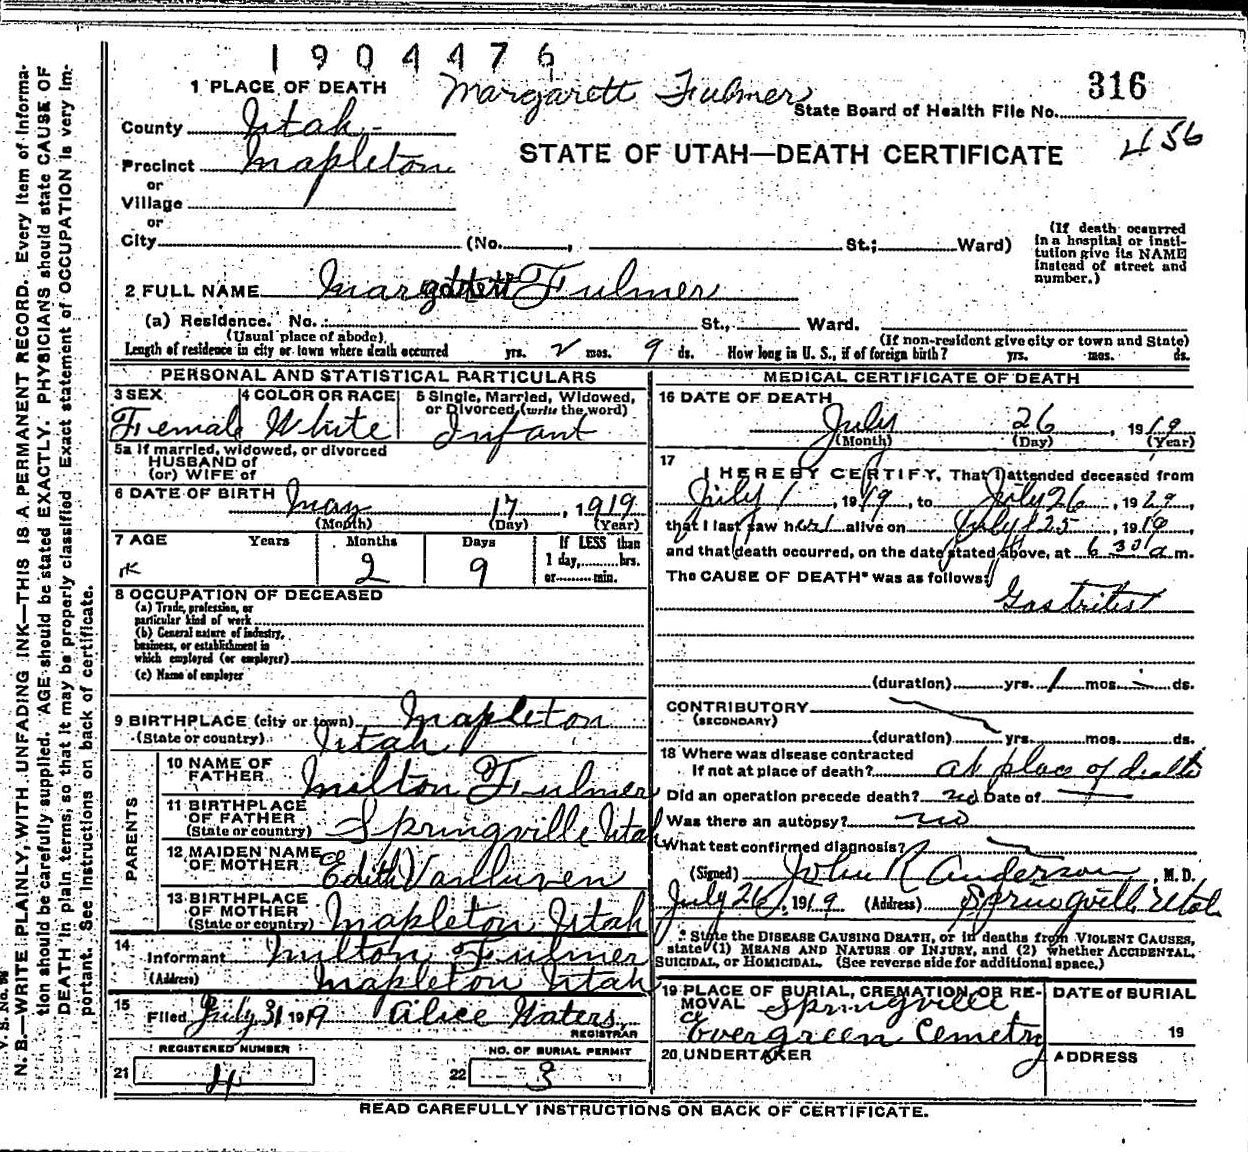 1904476
1 PLACE OF DEATH Margarett Fulmer 316
State Board of Health File No.
County Utah
456
STATE OF UTAH—DEATH CERTIFICATE
Precinct Mapleton
or
Village
or
City (No. , St.; Ward)
(If death occurred
in a hospital or insti-
tution give its NAME
instead of street and
number.)
2 FULL NAME Margarett Fulmer
(a) Residence. No. St., Ward.
(Usual place of abode) (If non-resident give city or town and State)
Length of residence in city or town where death occurred yrs. 2 mos. 9 ds. How long in U. S., if of foreign birth? yrs. mos. ds.
PERSONAL AND STATISTICAL PARTICULARS
3 SEX 4 COLOR OR RACE 5 Single, Married, Widowed,
or Divorced (write the word)
Female White Infant
5a If married, widowed, or divorced
HUSBAND of
(or) WIFE of
6 DATE OF BIRTH May 17, 1919
(Month) (Day) (Year)
7 AGE Years Months Days If LESS than
1 day, hrs.
2 9 or min.
8 OCCUPATION OF DECEASED
(a) Trade, profession, or
particular kind of work
(b) General nature of industry,
business, or establishment in
which employed (or employer)
(c) Name of employer
9 BIRTHPLACE (city or town) Mapleton
(State or country) Utah
PARENTS
10 NAME OF
FATHER Milton Fulmer
11 BIRTHPLACE
OF FATHER
(State or country) Springville Utah
12 MAIDEN NAME
OF MOTHER Edith VanLuven
13 BIRTHPLACE
OF MOTHER
(State or country) Mapleton Utah
14
Informant Milton Fulmer
(Address) Mapleton Utah
15
Filed July 31 1919 Alice Waters
REGISTRAR
REGISTERED NUMBER NO. OF BURIAL PERMIT
21 4 22 3
MEDICAL CERTIFICATE OF DEATH
16 DATE OF DEATH
July 26, 1919
(Month) (Day) (Year)
17
I HEREBY CERTIFY, That I attended deceased from
July 1, 1919, to July 26, 1919,
that I last saw her alive on July 25, 1919,
and that death occurred, on the date stated above, at 6 30 a m.
The CAUSE OF DEATH* was as follows:
Gastritis
(duration) yrs. 1 mos. – ds.
CONTRIBUTORY
(SECONDARY)
(duration) yrs. mos. ds.
18 Where was disease contracted
If not at place of death? at place of death
Did an operation precede death? no Date of
Was there an autopsy? no
What test confirmed diagnosis?
(Signed) John R Anderson, M.D.
July 26, 1919 (Address) Springville Utah
* State the DISEASE CAUSING DEATH, or in deaths from VIOLENT CAUSES,
state (1) MEANS AND NATURE OF INJURY, and (2) whether ACCIDENTAL,
SUICIDAL, or HOMICIDAL. (See reverse side for additional space.)
19 PLACE OF BURIAL, CREMATION, OR RE-
MOVAL Springville
Evergreen Cemetry
DATE of BURIAL
19
20 UNDERTAKER ADDRESS
READ CAREFULLY INSTRUCTIONS ON BACK OF CERTIFICATE.
N. B.—WRITE PLAINLY, WITH UNFADING INK—THIS IS A PERMANENT RECORD. Every item of informa-
tion should be carefully supplied. AGE should be stated EXACTLY. PHYSICIANS should state CAUSE OF
DEATH in plain terms, so that it may be properly classified. Exact statement of OCCUPATION is very im-
portant. See instructions on back of certificate.